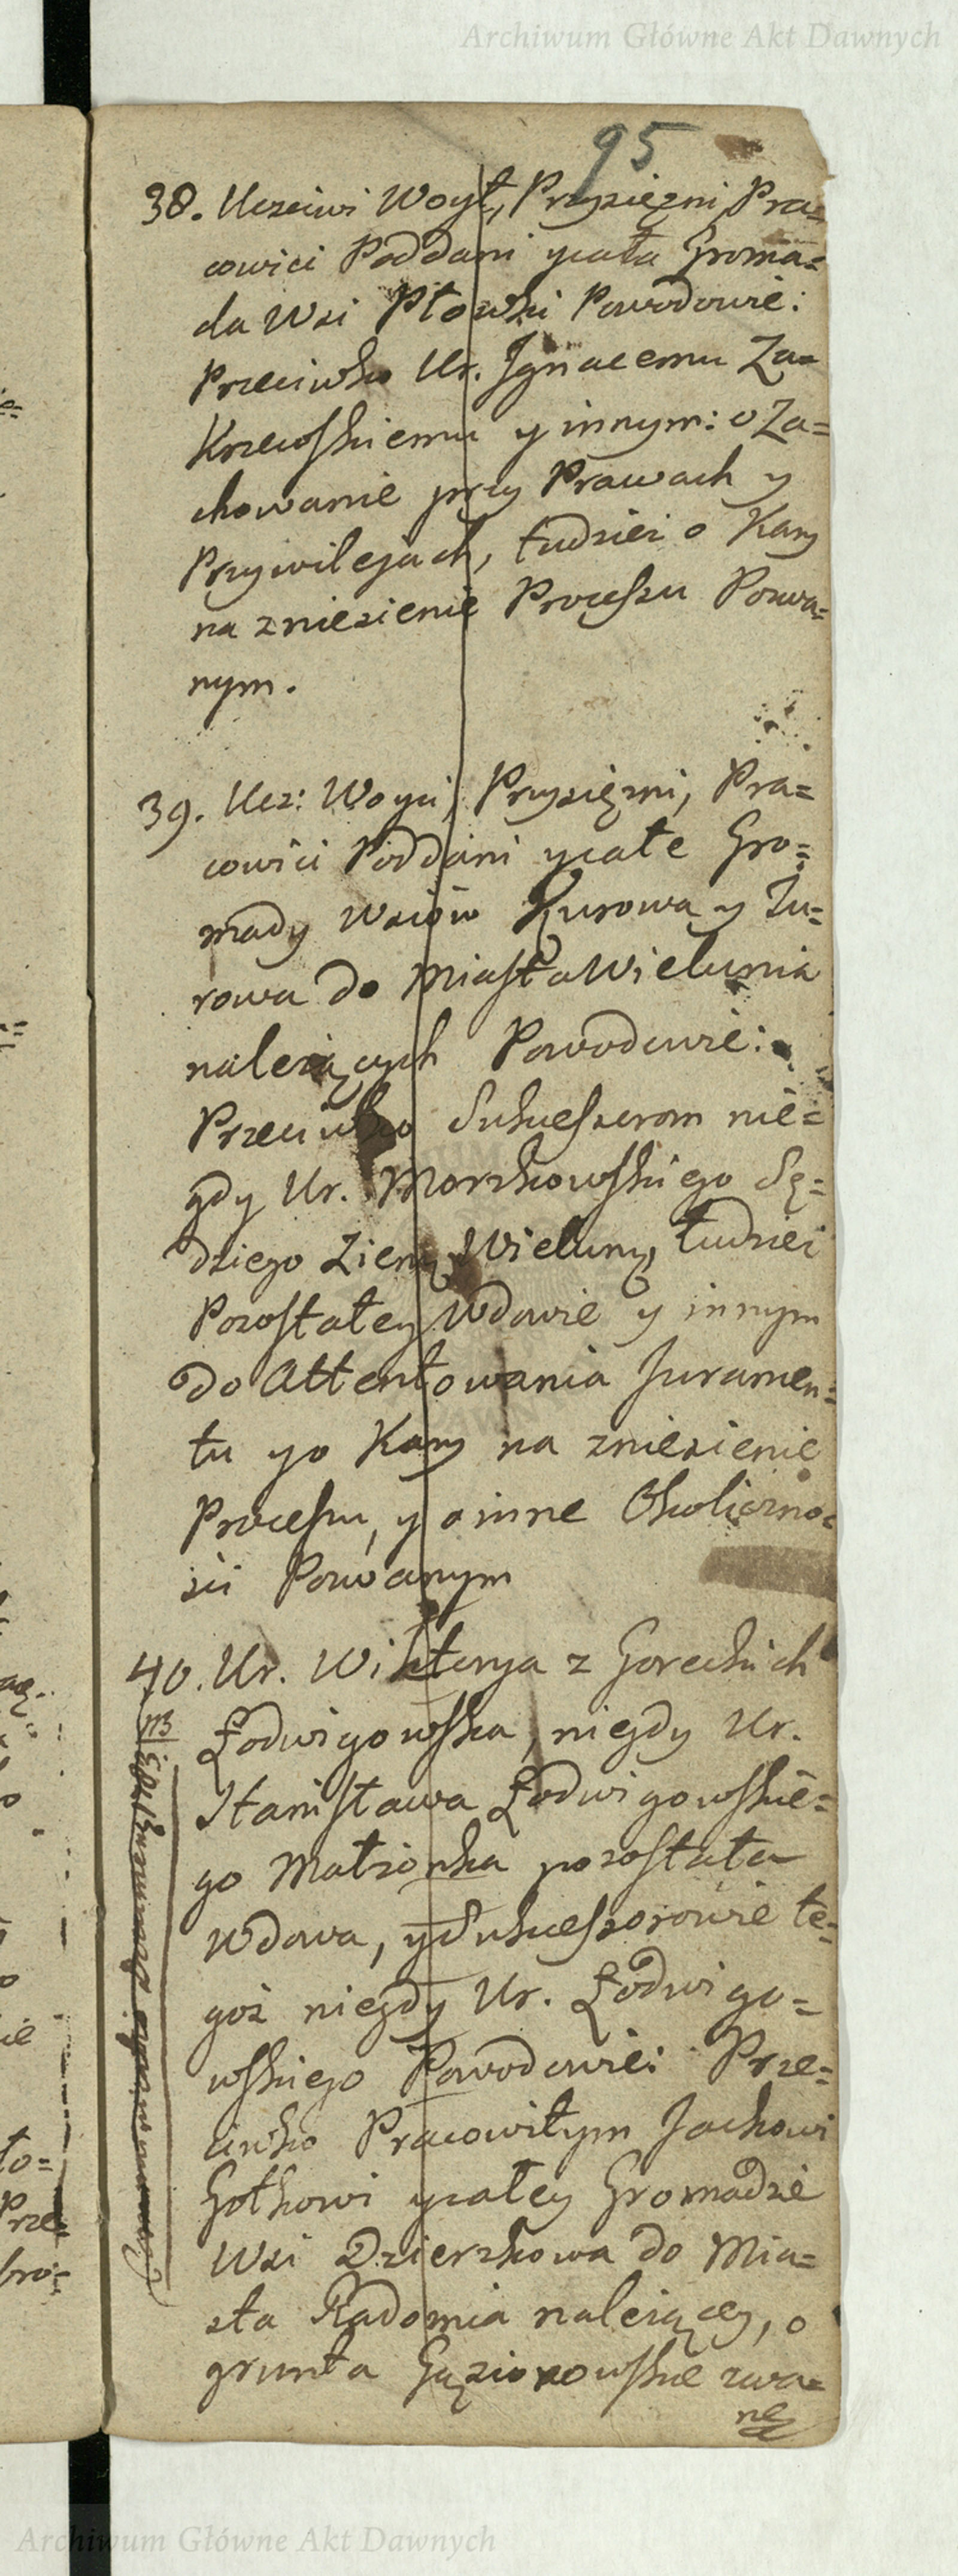 Archiwum Główne Akt Dawnych
95
38. Uczciwi Woyt, Przysięzni, Pra=
cowici Poddani y cała Groma=
da Wsi Płowki Powodowie:
Przeciwko Ur. Ignacemu Za=
Krzewskiemu y innym: o Za=
chowanie przy Prawach y
Przywilejach, tudziez o Kary
na zniesienie Processu Pozwa=
nym.
39. Ucz: Woyci, Przysięzni, Pra=
cowici Poddani y całe Gro=
mady Wsiów Kurowa y Tu=
rowa do Miasta Wielunia
nalezących Powodowie:
Przeciwko Sukcessorom nie=
gdy Ur. Morzkowskiego Sę=
dziego Ziem. Wielun. tudziez
Pozostałey Wdowie y innym
do Attentowania Juramen=
tu y o Kary na zniesienie
Processu, y o inne Okoliczno=
sci Pozwanym
40. Ur. Wiktorya z Goreckich
Łodwigowska, niegdy Ur.
Stanisława Łodwigowskie=
go Małzonka pozostała
Wdowa, y Sukcessorowie te=
goż niegdy Ur. Łodwigo=
wskiego Powodowie: Prze=
ciwko Pracowitym Jackowi
Gotkowi y całey Gromadzie
Wsi Dzierzkowa do Mia=
sta Radomia nalezącey, o
grunta Gąsiorowskie zwa=
ne
NB
Archiwum Główne Akt Dawnych